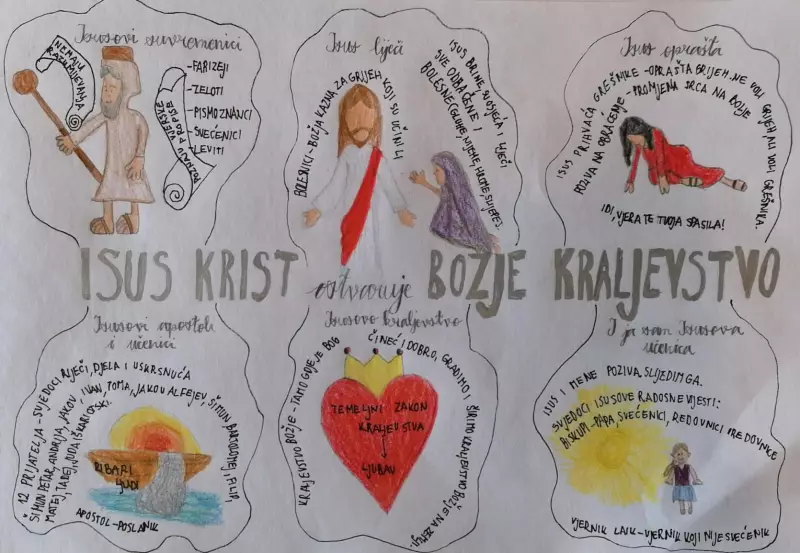 Isusovi suvremenici
NEMAJU
RAZUMIJEVANJA
POZNAJU PROPISE
VJERSKE
-FARIZEJI
-ZELOTI
-PISMOZNANCI
-SVEĆENICI
-LEVITI
Isus liječi
BOLESNICI-BOŽJA KAZNA ZA GRIJEH KOJI SU UČINILI
ISUS BRINE, SUOSJEĆA I LIJEČI
SVE ODBAČENE I
BOLESNE(GLUHE, NIJEME, HROME, SLIJEPE).
Isus oprašta
ISUS PRIHVAĆA GREŠNIKE-OPRAŠTA GRIJEH. NE VOLI GRIJEH ALI VOLI GREŠNIKA.
POZIVA NA OBRAĆENJE-PROMJENA SRCA NA BOLJE
IDI, VJERA TE TVOJA SPASILA!
ISUS KRIST ostvaruje BOŽJE KRALJEVSTVO
Isusovi apostoli
i učenici
12 PRIJATELJA-SVJEDOCI RIJEČI, DJELA I USKRSNUĆA
ŠIMUN PETAR, ANDRIJA, JAKOV, IVAN, TOMA, JAKOV ALFEJEV, ŠIMUN BARTOLOMEJ, FILIP,
MATEJ, TADEJ, JUDA IŠKARIOTSKI.
RIBARI
LJUDI
APOSTOL-POSLANIK
Isusovo kraljevstvo
KRALJEVSTVO BOŽJE-TAMO GDJE JE BOG
ČINEĆI DOBRO, GRADIMO I
ŠIRIMO KRALJEVSTVO BOŽJE NA ZEMLJI.
TEMELJNI ZAKON
KRALJEVSTVA
LJUBAV
I ja sam Isusova
učenica
ISUS I MENE POZIVA SLIJEDIM GA.
SVJEDOCI ISUSOVE RADOSNE VIJESTI:
BISKUPI-PAPA, SVEĆENICI, REDOVNICI I REDOVNICE
VJERNIK LAIK-VJERNIK KOJI NIJE SVEĆENIK